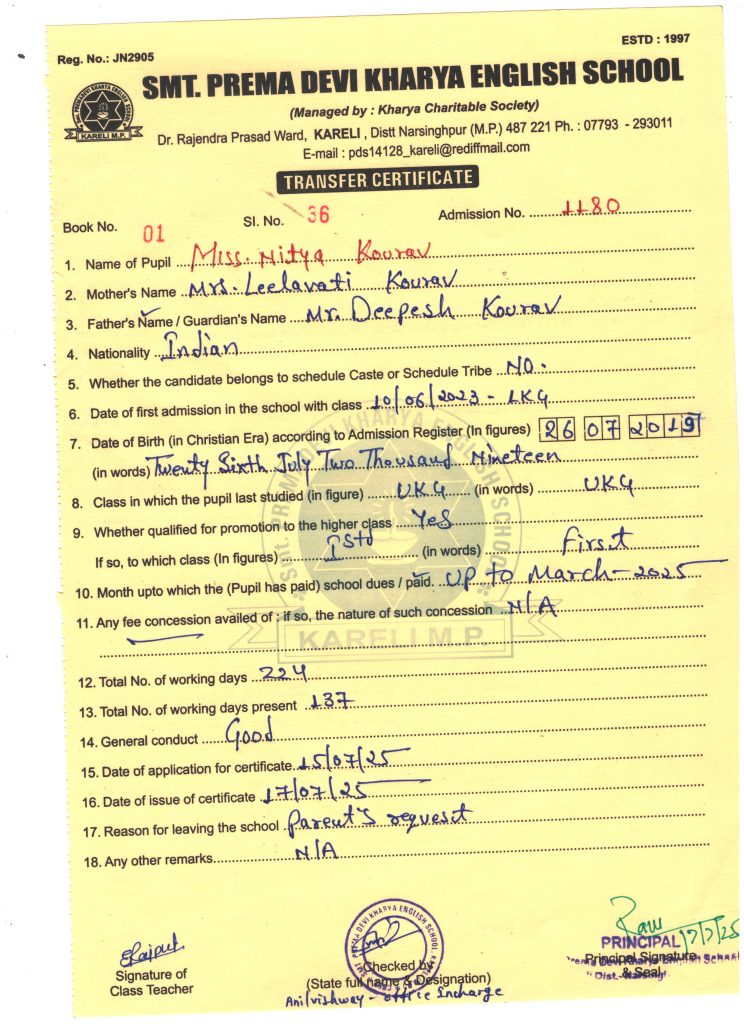 Reg. No.: JN2905
ESTD : 1997
SMT. PREMA DEVI KHARYA ENGLISH SCHOOL
(Managed by : Kharya Charitable Society)
Dr. Rajendra Prasad Ward, KARELI, Distt Narsinghpur (M.P.) 487 221 Ph. : 07793 - 293011
E-mail : pds14128_kareli@rediffmail.com
KARELI M.P.
TRANSFER CERTIFICATE
Book No. 01 Sl. No. 36 Admission No. 1180
1. Name of Pupil Miss. Nitya Kourav
2. Mother's Name Mrs. Leelavati Kourav
3. Father's Name / Guardian's Name Mr. Deepesh Kourav
4. Nationality Indian
5. Whether the candidate belongs to schedule Caste or Schedule Tribe NO.
6. Date of first admission in the school with class 10/06/2023 - LKG
7. Date of Birth (in Christian Era) according to Admission Register (In figures) 26 07 2019
(in words) Twenty Sixth July Two Thousand Nineteen
8. Class in which the pupil last studied (in figure) UKG (in words) UKG
9. Whether qualified for promotion to the higher class Yes
If so, to which class (In figures) I Std (in words) First
10. Month upto which the (Pupil has paid) school dues / paid. UP to March-2025
11. Any fee concession availed of : if so, the nature of such concession N/A
KARELI M.P.
12. Total No. of working days 224
13. Total No. of working days present 137
14. General conduct Good
15. Date of application for certificate 15/07/25
16. Date of issue of certificate 17/07/25
17. Reason for leaving the school Parent's request
18. Any other remarks N/A
Signature of
Class Teacher
Checked by
(State full name & Designation)
office Incharge
17/7/25
PRINCIPAL
Principal Signature
& Seal